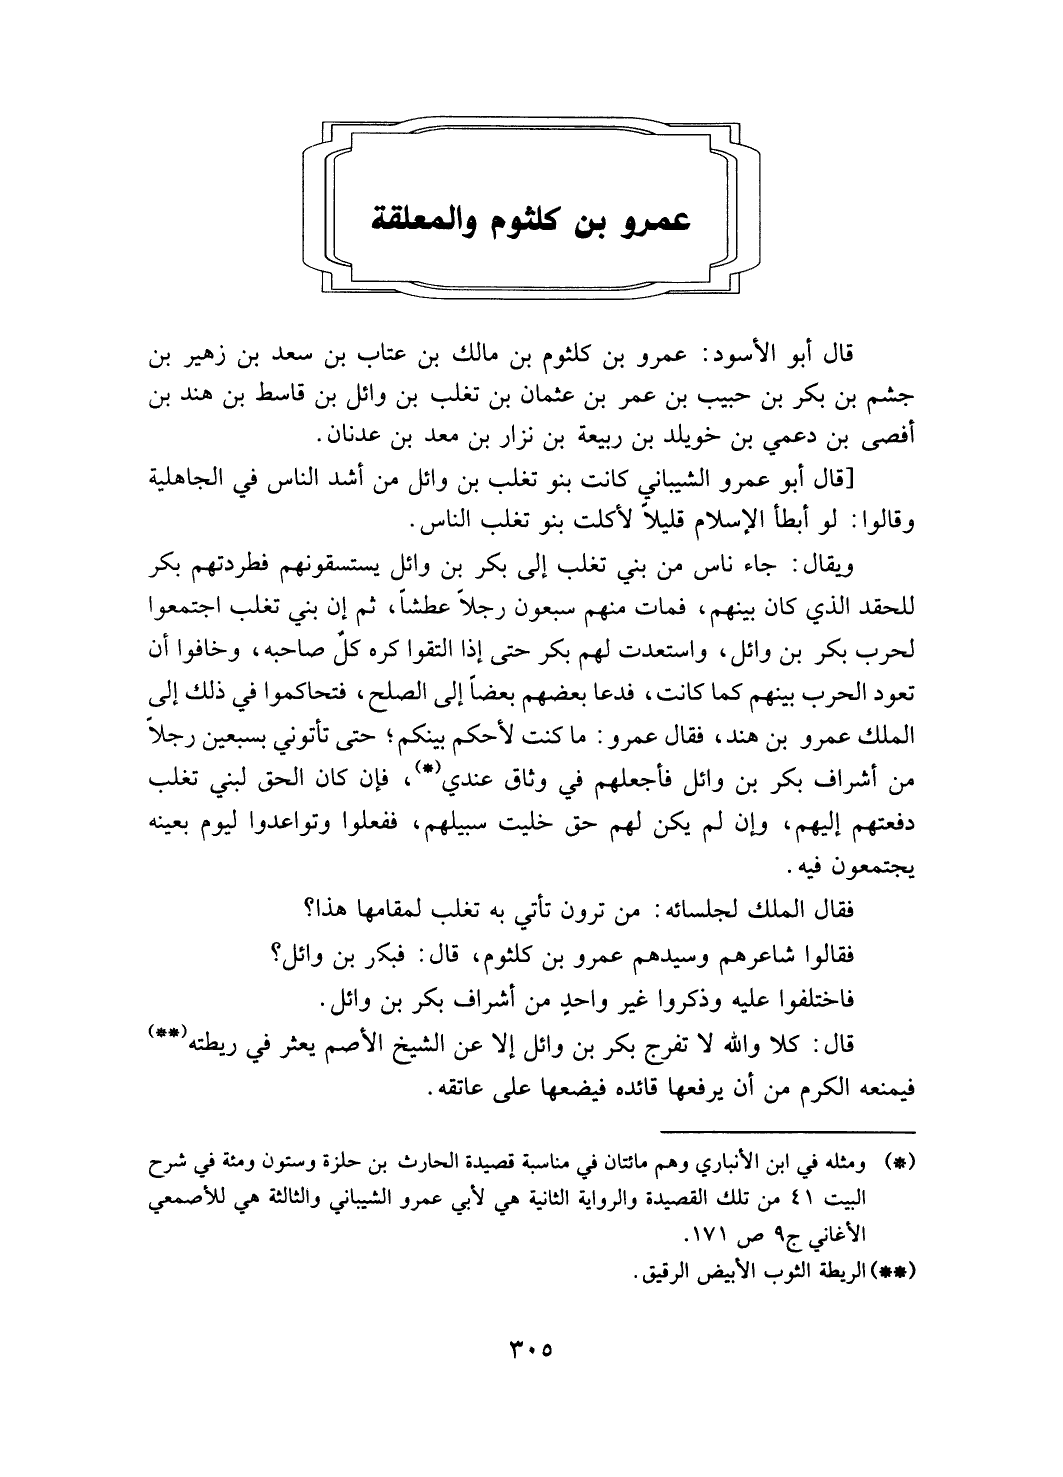 عمرو بن كلثوم والمعلقة
قال أبو الأسود: عمرو بن كلثوم بن مالك بن عتاب بن سعد بن زهير بن
جشم بن بكر بن حبيب بن عمر بن عثمان بن تغلب بن وائل بن قاسط بن هند بن
أفصى بن دعمي بن خويلد بن ربيعة بن نزار بن معد بن عدنان.
[قال أبو عمرو الشيباني كانت بنو تغلب بن وائل من أشد الناس في الجاهلية
وقالوا: لو أبطأ الإسلام قليلاً لأكلت بنو تغلب الناس.
ويقال: جاء ناس من بني تغلب إلى بكر بن وائل يستسقونهم فطردتهم بكر
للحقد الذي كان بينهم، فمات منهم سبعون رجلاً عطشاً، ثم إن بني تغلب اجتمعوا
لحرب بكر بن وائل، واستعدت لهم بكر حتى إذا التقوا كره كلٌ صاحبه، وخافوا أن
تعود الحرب بينهم كما كانت، فدعا بعضهم بعضاً إلى الصلح، فتحاكموا في ذلك إلى
الملك عمرو بن هند، فقال عمرو: ما كنت لأحكم بينكم؛ حتى تأتوني بسبعين رجلاً
من أشراف بكر بن وائل فأجعلهم في وثاق عندي(*)، فإن كان الحق لبني تغلب
دفعتهم إليهم، وإن لم يكن لهم حق خليت سبيلهم، ففعلوا وتواعدوا ليوم بعينه
يجتمعون فيه.
فقال الملك لجلسائه: من ترون تأتي به تغلب لمقامها هذا؟
فقالوا شاعرهم وسيدهم عمرو بن كلثوم، قال: فبكر بن وائل؟
فاختلفوا عليه وذكروا غير واحدٍ من أشراف بكر بن وائل.
قال: كلا والله لا تفرج بكر بن وائل إلا عن الشيخ الأصم يعثر في ريطته(**)
فيمنعه الكرم من أن يرفعها قائده فيضعها على عاتقه.
(*) ومثله في ابن الأنباري وهم مائتان في مناسبة قصيدة الحارث بن حلزة وستون ومئة في شرح
البيت ٤١ من تلك القصيدة والرواية الثانية هي لأبي عمرو الشيباني والثالثة هي للأصمعي
الأغاني ج٩ ص ١٧١.
(**) الريطة الثوب الأبيض الرقيق.
٣٠٥